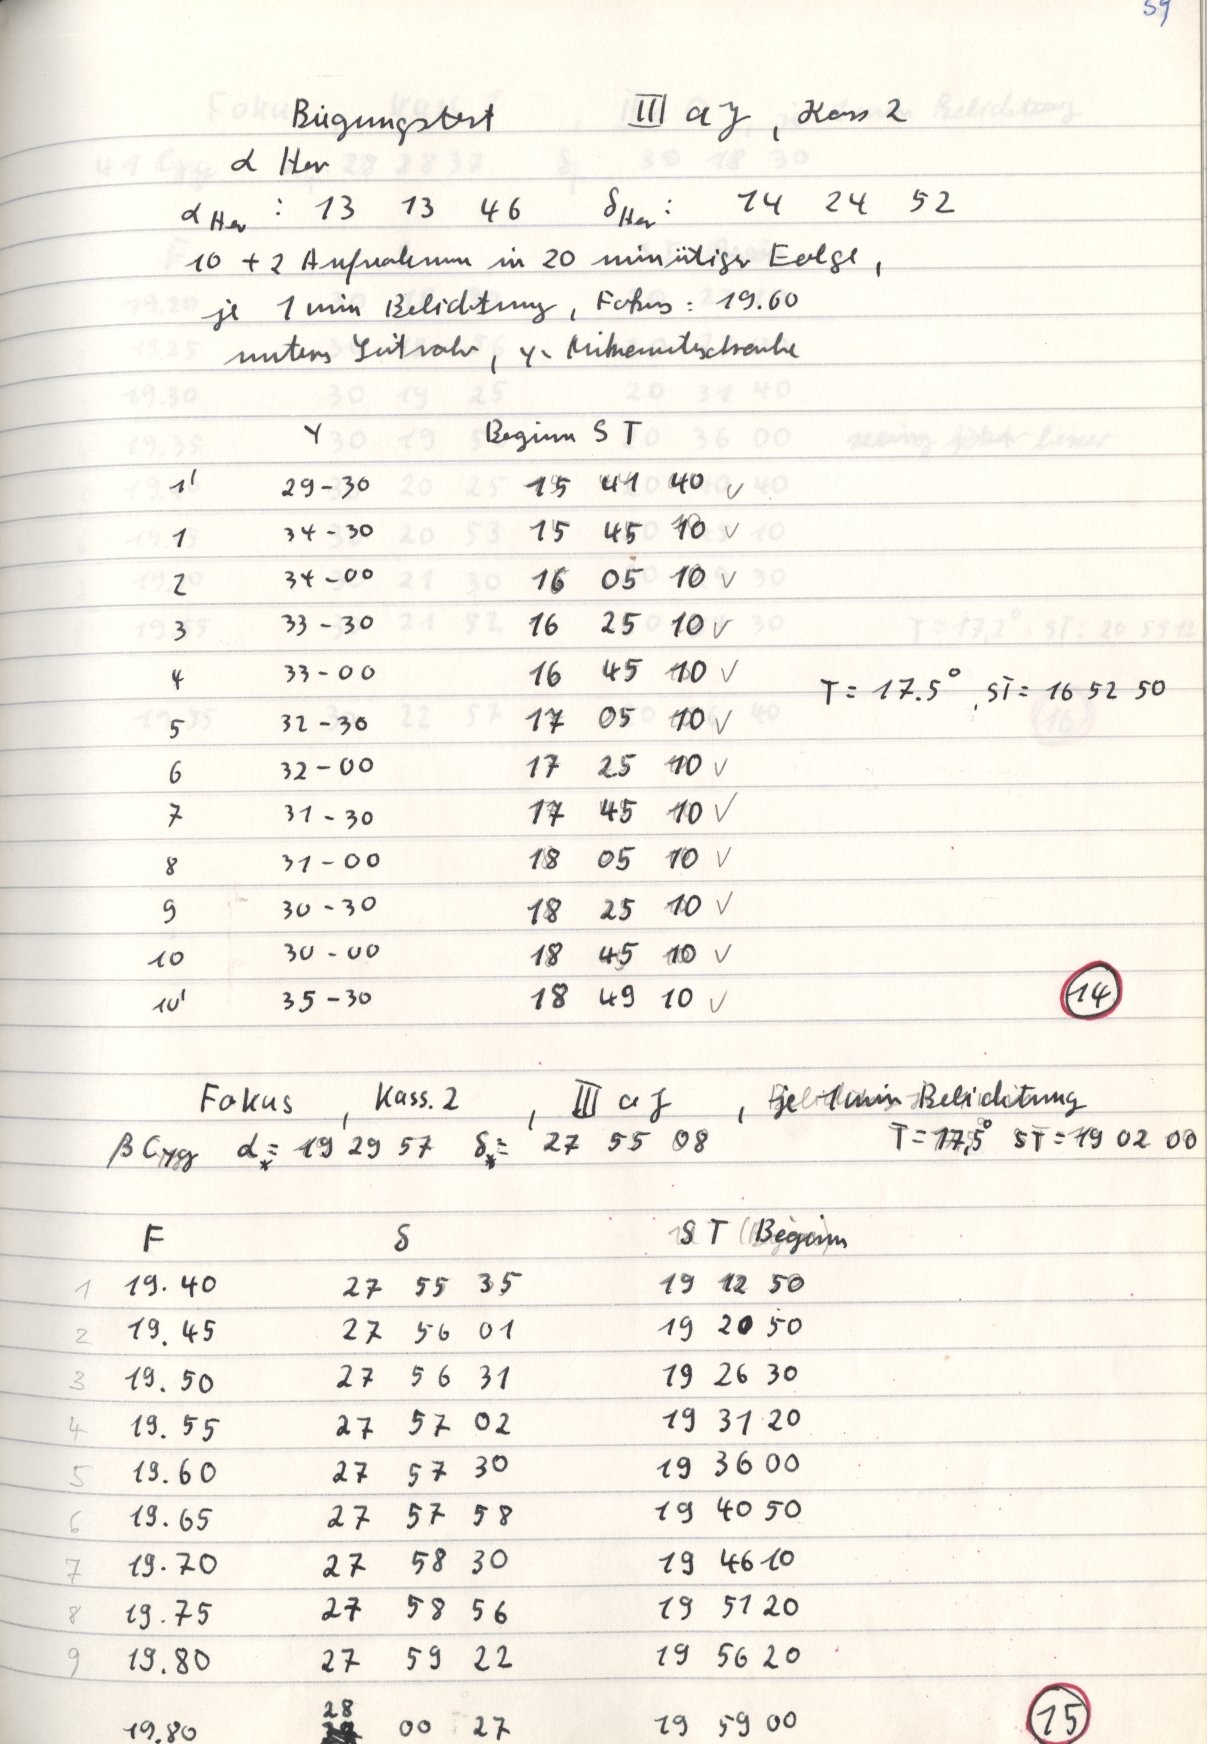 59
Biegungstest III a J, Kass 2
α Her
α Her : 13 13 46 δ Her : 14 24 52
10 + 2 Aufnahmen in 20 minütiger Folge,
je 1 min Belichtung, Fokus : 19.60
unteres Leitrohr, y-
Y Beginn S T
1' 29-30 15 41 40 ✓
1 34-30 15 45 10 ✓
2 34-00 16 05 10 ✓
3 33-30 16 25 10 ✓
4 33-00 16 45 10 ✓
T = 17.5°, ST = 16 52 50
5 32-30 17 05 10 ✓
6 32-00 17 25 10 ✓
7 31-30 17 45 10 ✓
8 31-00 18 05 10 ✓
9 30-30 18 25 10 ✓
10 30-00 18 45 10 ✓
10' 35-30 18 49 10 ✓
14
Fokus, Kass. 2, III a J, je 1 min Belichtung
β Cyg α* = 19 29 57 δ* = 27 55 08 T = 17,5° ST = 19 02 00
F δ S T (Beginn)
1 19.40 27 55 35 19 12 50
2 19.45 27 56 01 19 20 50
3 19.50 27 56 31 19 26 30
4 19.55 27 57 02 19 31 20
5 19.60 27 57 30 19 36 00
6 19.65 27 57 58 19 40 50
7 19.70 27 58 30 19 46 10
8 19.75 27 58 56 19 51 20
9 19.80 27 59 22 19 56 20
19.80 28 00 27 19 59 00
15